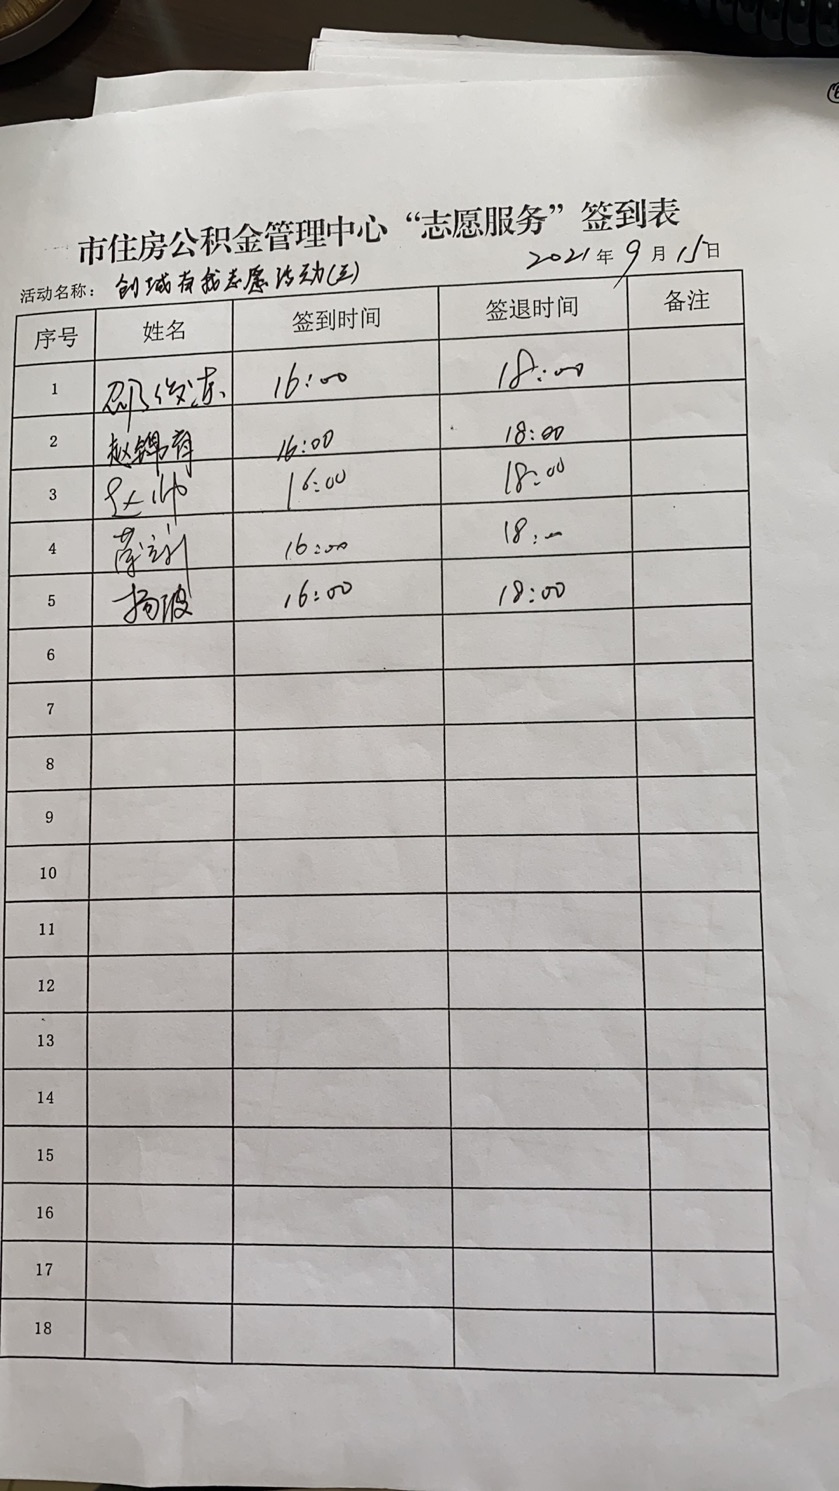 市住房公积金管理中心“志愿服务”签到表
活动名称: 创城有我志愿活动(三) 2021年9月15日
序号 姓名 签到时间 签退时间 备注
1 邵俊涛 16:00 18:00
2 赵锦 16:00 18:00
3 16:00 18:00
4 16:00 18:00
5 杨波 16:00 18:00
6
7
8
9
10
11
12
13
14
15
16
17
18